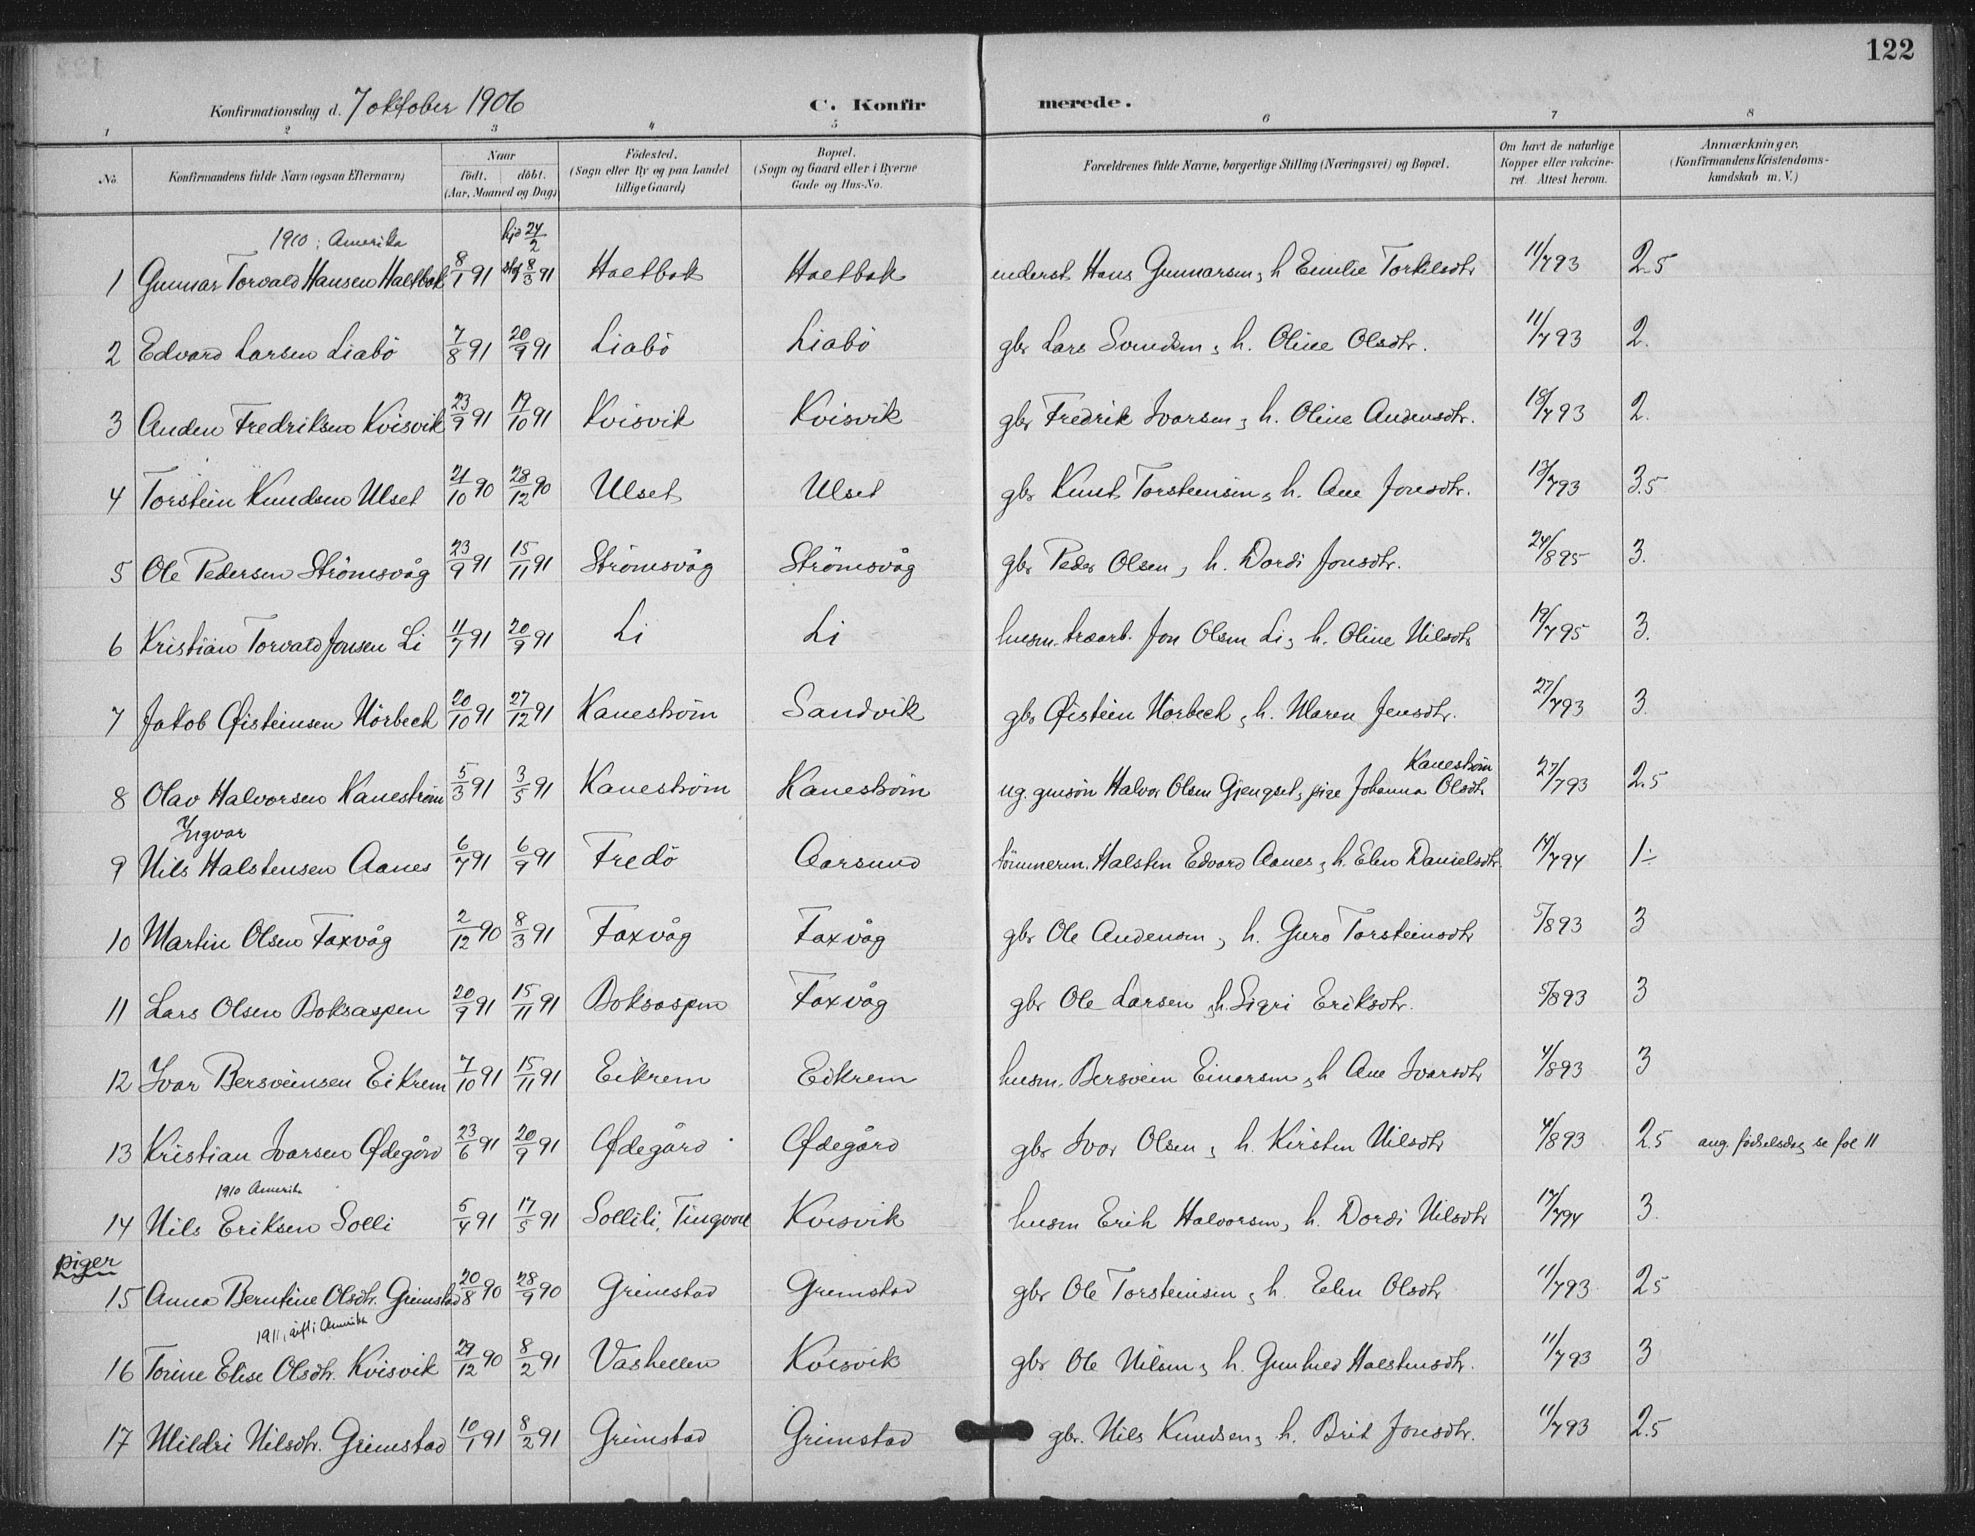 122
Konfirmationsdag d. 7 oktober 1906 C. Konfirmerede.
1 2 3 4 5 6 7 8
No. Konfirmandens fulde Navn (ogsaa Efternavn) Naar født. døbt. (Aar, Maaned og Dag) Fødested. (Sogn eller By og paa Landet tillige Gaard) Bopæl. (Sogn og Gaard eller i Byerne Gade og Hus-No. Forældrenes fulde Navne, borgerlige Stilling (Næringsvei) og Bopæl. Om havt de naturlige Kopper eller vakcineret. Attest herom. Anmærkninger, (Konfirmandens Kristendomskundskab m. V.)
1910: Amerika hjd 24/2
1 Gunnar Torvald Hansen Haltbak 8/1 91 8/3 91 Haltbak Haltbak inderst Hans Gunnarsen, h. Emilie Torkilsdtr 11/7 93 2.5
2 Edvard Larsen Liabö 7/8 91 20/9 91 Liabö Liabö gbr Lars Svendsen, h. Oline Olsdtr. 11/7 93 2.
3 Anden Fredriksen Kvisvik 23/9 91 19/10 91 Kvisvik Kvisvik gbr Fredrik Ivarsen, h. Oline Andensdtr. 18/7 93 2.
4 Torstein Knudsen Ulset 21/10 90 28/12 90 Ulset Ulset gbr Knut Torsteinsen, h. Ane Jonsdtr. 13/7 93 3.5
5 Ole Pedersen Strömsvåg 23/9 91 15/11 91 Strömsvåg Strömsvåg gbr Peder Olsen, h. Dordi Jonsdtr. 24/8 95 3.
6 Kristian Torvald Jonsen Li 11/7 91 20/9 91 Li Li husm. træarb. Jon Olsen Li, h. Oline Nilsdtr 19/7 95 3.
7 Jakob Øisteinsen Nörbech 20/10 91 27/12 91 Kaneström Sandvik gbr Øistein Nörbech, h. Maren Jensdtr. 27/7 93 3.
Kaneström
8 Olav Halvorsen Kaneström 5/3 91 3/5 91 Kaneström Kaneström ug. gmsön Halvor Olsen Gjengset, pige Johanna Olsdtr 27/7 93 2.5
Ingvar
9 Nils Halstensen Aanes 6/7 91 6/9 91 Fredö Aarsund tömmerm. Halsten Edvard Aanes, h. Elen Danielsdtr. 17/7 94 1÷
10 Martin Olsen Foxvåg 2/12 90 8/3 91 Foxvåg Foxvåg gbr Ole Andensen, h. Guro Torsteinsdtr 5/8 93 3
11 Lars Olsen Boksaspen 20/9 91 15/11 91 Boksaspen Foxvåg gbr Ole Larsen, h. Sigri Eriksdtr. 5/8 93 3
12 Ivar Bersveinsen Eikrem 7/10 91 15/11 91 Eikrem Eikrem husm. Bersvein Einarsen, h Ane Ivarsdtr 4/8 93 3
13 Kristian Ivarsen Ødegård 23/6 91 20/9 91 Ødegård Ødegård gbr Ivar Olsen, h. Kirsten Nilsdtr 4/8 93 2.5 ang. fødselsdag se fol 11
1910 Amerika
14 Nils Eriksen Solli 5/4 91 17/5 91 Sollili, Tingvoll Kvisvik husm Erik Halvorsen, h. Dordi Nilsdtr 17/7 94 3.
piger
15 Anna Berntine Olsdtr. Grimstad 20/8 90 28/9 90 Grimstad Grimstad gbr Ole Torsteinsen, h. Elen Olsdtr 11/7 93 2.5
1911, gift i Amerika
16 Torine Elise Olsdtr. Kvisvik 29/12 90 8/2 91 Vashellen Kvisvik gbr Ole Nilsen, h. Gunhild Halstensdtr. 11/7 93 3
17 Mildri Nilsdtr. Grimstad 10/1 91 8/2 91 Grimstad Grimstad gbr. Nils Knudsen, h. Brit Jonsdtr. 11/7 93 2.5